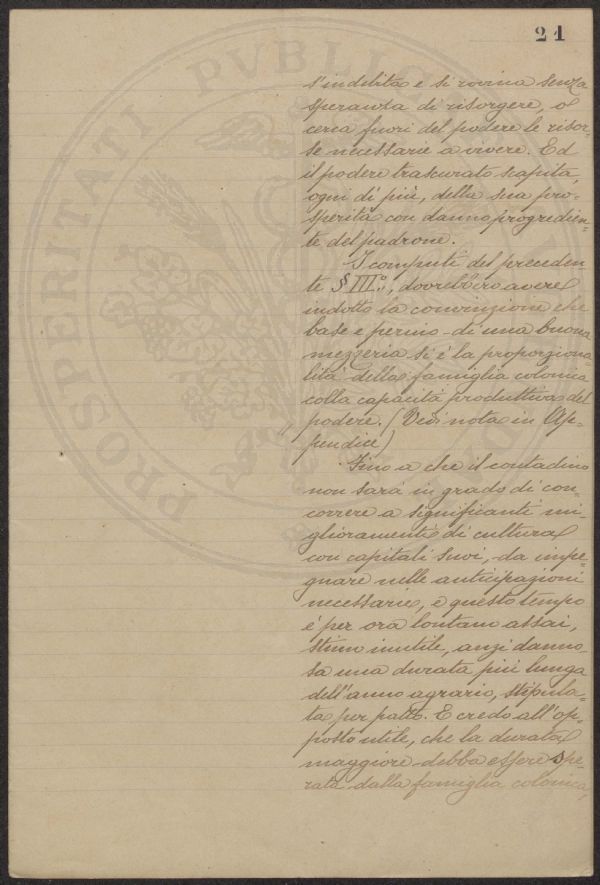 21
PROSPERITATI PVBLICAE
s'indebita e si rovina senza
speranza di risorgere, o
cerca fuori del podere le risor-
se necessarie a vivere. Ed
il podere trascurato scapita,
ogni dì più, della sua pro-
sperità con danno progredien-
te del padrone.
I computi del preceden-
te § III°., dovrebbero avere
indotto la convinzione che
base e perno di una buona
mezzeria si è la proporziona-
lità della famiglia colonica
colla capacità produttiva del
podere. (Vedi nota in Ap-
pendice)
Fino a che il contadino
non sarà in grado di con-
correre a significanti mi-
glioramenti di cultura
con capitali suoi, da impe-
gnare nelle anticipazioni
necessarie, e questo tempo
è per ora lontano assai,
stimo inutile, anzi danno-
sa una durata più lunga
dell'anno agrario, stipula-
ta per patto. E credo all'op-
posto utile, che la durata
maggiore debba essere spe-
rata dalla famiglia colonica,